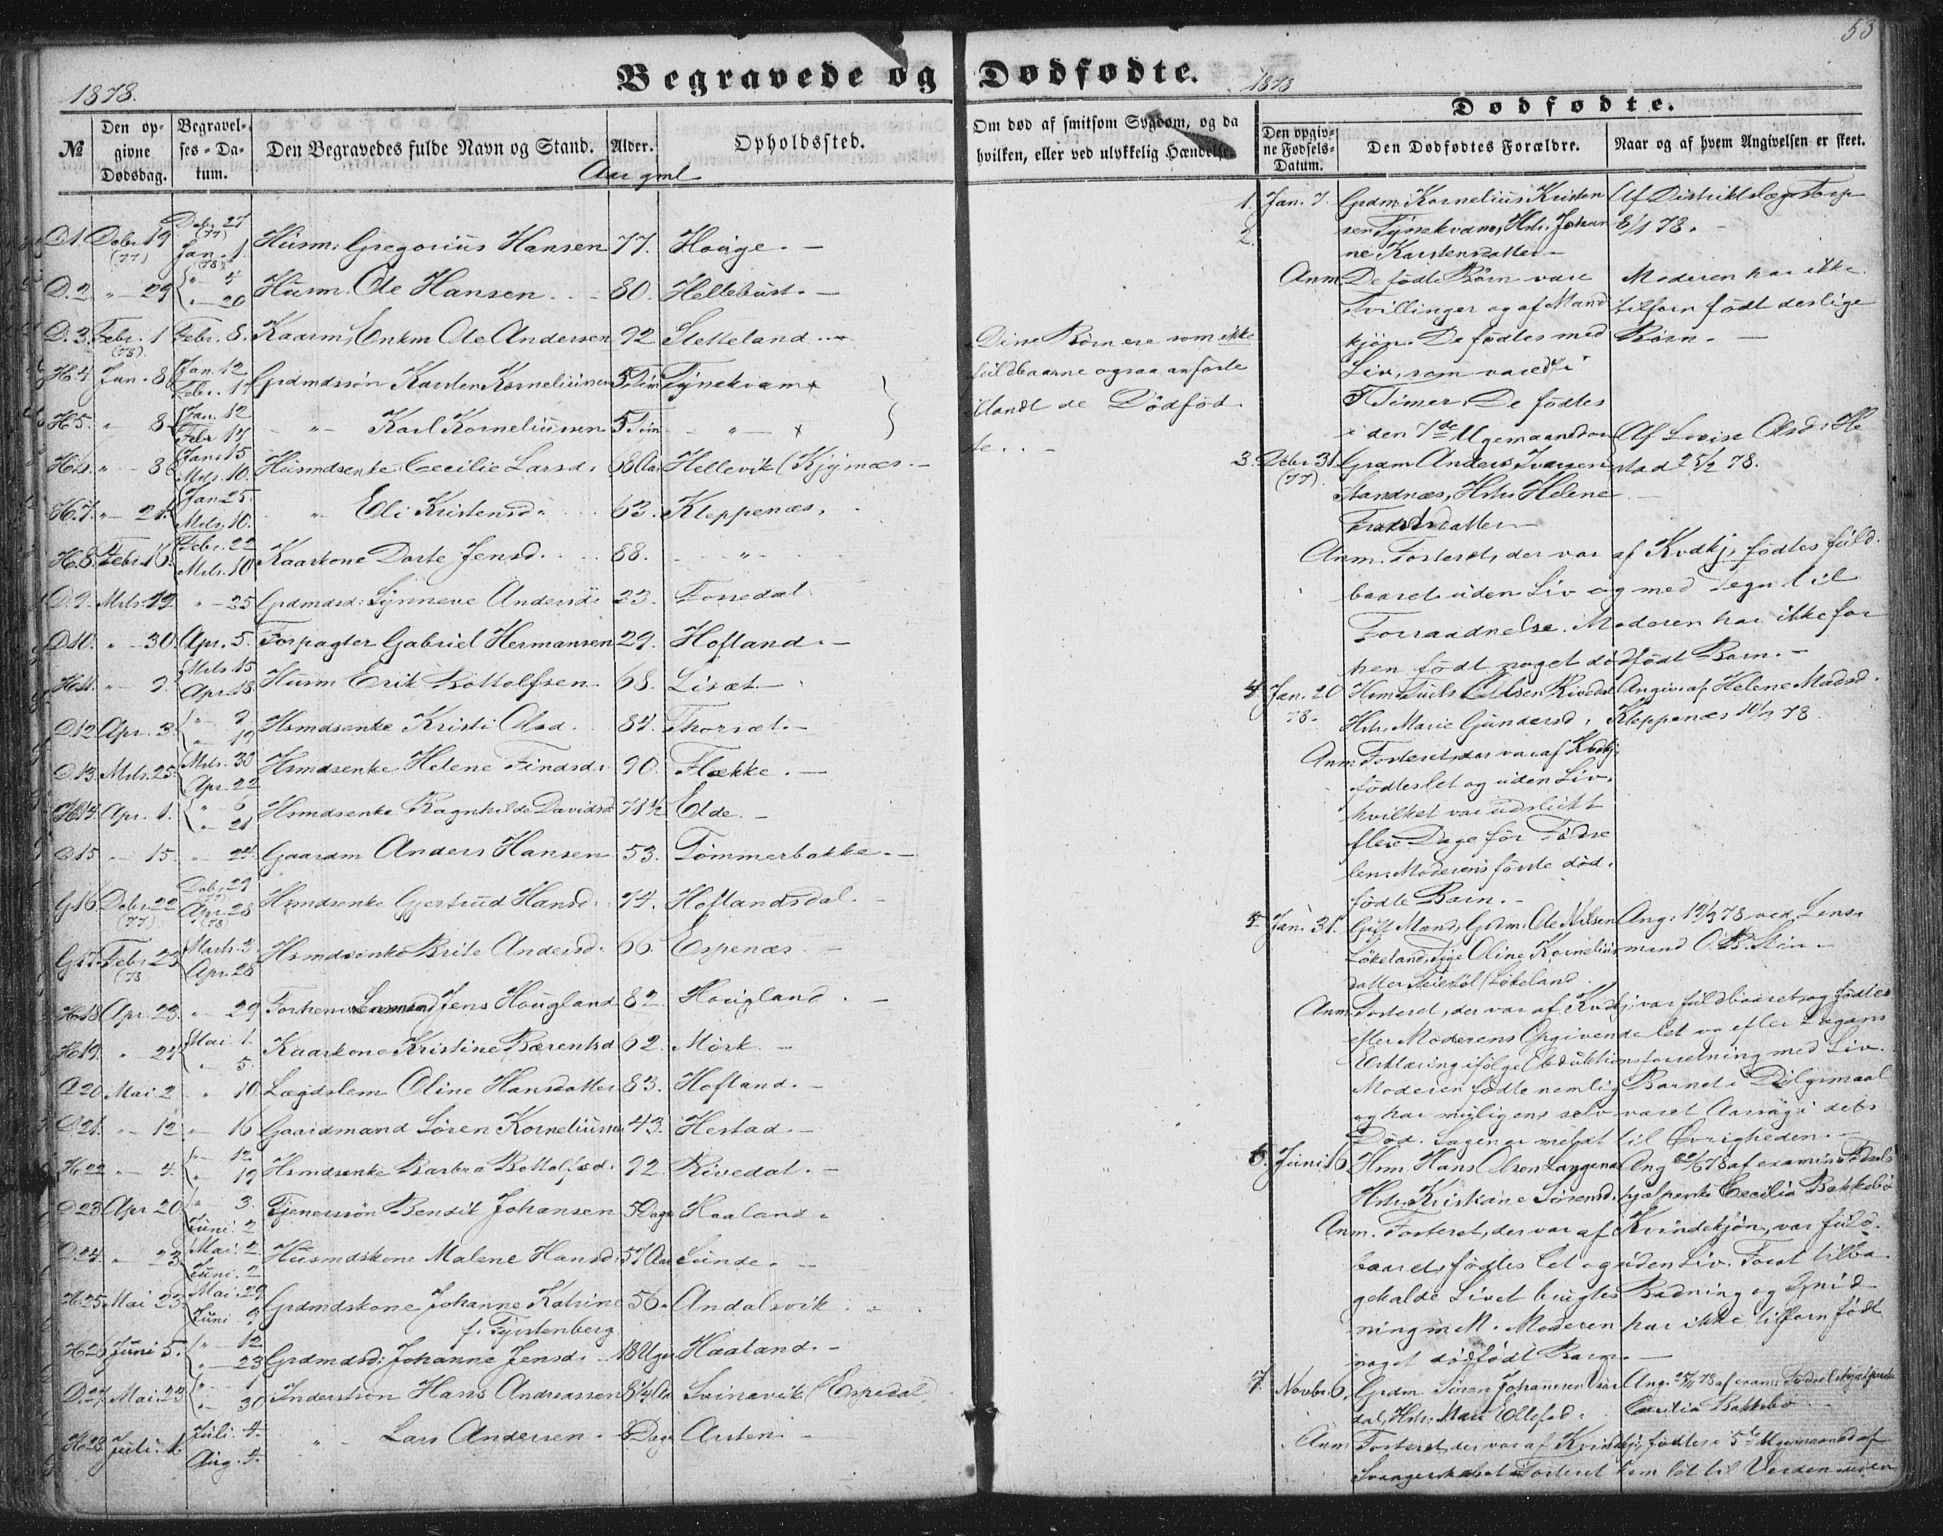 53
1878.
Begravede og Dødfødte.
1878
№
Den opgivne Dødsdag.
Begravelses-Datum.
Den Begravedes fulde Navn og Stand.
Alder.
Opholdssted.
Om død af smitsom Sygdom, og da hvilken, eller ved ulykkelig Hændelse.
Aar gml
D1. Debr 19 (77) Debr 27 (77) Jan. 1. (78) Husm: Gregorius Hansen 77. Hauge. —
D.2. " 29 " 4 " 20 Husm. Ole Hansen. 80. Hellebust. —
D.3. Febr. 1 (78). Febr. 8. Kaarm, Enkm Ole Andersen 92 Sletteland. —
H4 Jan. 8 Jan. 12 Febr. 17 Grdmdssøn Karsten Korneliussen 5 Tim Tynekvam x
H5. " 8 Jan. 12 Febr 17 " Karl Korneliussen 5 Tim " x
Disse Børn ere som ikke
fuldbaarne ogsaa anførte
blandt de Dødfød
te. . —
H6. " 8 Jan. 15 Mrts. 10. Husmdsenke Cecilie Larsd. 68 Aar Hellevik (Kjymæs. —
H.7. " 21. Jan 25. Mrts. 10. " Eli Kristensd. 63. Kleppenæs.
H.8. Febr. 16. Febr. 22 Mrts. 10 Kaarkone Dorte Jensd. 88. "
D.9. Mrts. 19 " 25 Grdmdsd: Synneve Andersd. 23. Fossedal
D10. " 30 Apr. 5. Forpagter Gabriel Hermansen 29. Hofland. —
H11. " 9. Mrts. 15 Apr. 18 Husm Erik Bottolfsen 68. Lisæt. —
D12 Apr. 3. " 9 " 19 Hsmdsenke Kristi Olsd. 84. Thorsæt. —
D.13. Mrts. 25. Mrts. 30 Apr. 22 Hsmdsenke Helene Findsd. 90. Flække. —
H14. Apr. 1. " 6 " 21 Hsmdsenke Ragnhilde Davidsd 71½ Elde. —
D15 " 15. " 24. Gaardm Anders Hansen 53. Tømmerbakke. —
G16 Debr. 22 (77) Debr 29 Apr. 28 (78) Hsmdsenke Gjertrud Hansd. 74. Hoflandsdal. —
G17. Febr. 23 (78 Marts. 3. Apr. 28 Hsmdsenke Brite Andersd. 66. Espenæs. —
H18 Apr. 23. " 29 Forhenv. Lensmand Jens Hougland 82. Hougland. —
H19. " 24 Mai. 1. " 5. Kaarkone Kristine Bærentsd 62. Mørk. —
D20. Mai. 2 " 10 Lægdslem Oline Hansdatter 83. Hofland. —
D21. " 12 " 16 Gaardmand Søren Korneliussen 43. Hestad. —
H22 " 4. " 12 " 19 Hsmdsenke Barbra Bottolfsd. 92. Rivedal. —
D23 Apr 20 " 3. Juni. 2 Tjenerssøn Bendik Johansen 5 Dage Haaland.
D.24. " 23. Mai. 2 Juni. 2 Husmdskone Malene Hansd. 57 Aar Sunde.
H25. Mai 23. Mai. 29 Juni. 9 Grdmdskone Johanne Katrine 56. Andalsvik.
f. Fyrstenberg
H.26 Juni 5. " 12 " 23 Grdmdsd: Johanne Jensd. 18 Uger Haaland. —
D.27. Mai. 23 " 1 " 30 Inderstsøn Hans Andreassen 8¼ Aa Svinevik (Espedal)
H.28. Juli. 1. Juli. 4. Aug. 4. " Lars Andersen 6 Dage Arsten. —
Dødfødte.
Den opgivne Fødsels-Datum.
Den Dødfødtes Forældre.
Naar og af hvem Angivelsen er skeet.
1. Jan. 7. Grdm: Kornelius Kristen Af Distriktslæge Torp
2. sen Tynekvam, Hstr. Johan 8/1 78. —
ne Karstensdatter —
Anm De fødte Børn vare Moderen har ikke
Tvillinger og af Mand tilforn født deslige
kjøn. De fødtes med Børn. —
Liv, som varede i
5 Timer. De fødtes
i den 7de Ugemaaned
Af Lovise Olsd. He
3. Debr 31 (77) Grdm Anders Ivarsen stad 25/2 78.
Standnæs, Hstr. Helene —
datter —
Anm. Fosteret, der var af Kvdkj, fødtes fuld
baaret uden Liv og med Tegn til
Forraadnelse. Moderen har ikke før
hen født noget dødfødt Barn. —
4 Jan. 20 78. Hsm Nils Olsen Rivedal Angiv. af Helene Madsd.
Hstr. Marie Gundersd. Kleppenæs 10/3 78.
Anm Fosteret, der var af Kvdkj,
fødtes let og uden Liv,
hvilket var udslukt
flere Dage før Fødse
len. Moderens første død.
fødte Barn. —
5 Jan. 31. Gift Mand, Grdm. Ole Nilsen Ang. 19/3 78 ved Lens
Løkeland, Pige Oline Kornelius mand O. B. Stein. —
datter / Løkeland
Anm. Fosteret, der var af Kvdkj, var fuldbaaret og fødtes
efter Moderens Opgivende let og efter Lægens
Erklæring ifølge Obduktionsforretning med Liv.
Moderen fødte nemlig Barnet i Dølgsmaal
og har muligens selv været Aarsag i dets
Død. Sagen er meldt til Øvrigheden. —
6. Juni 16 Hsm Hans Olsen Langenæs Ang 22/6 78 af examin: Fødsels
Hstr. Kristiane Sørensd. hjælperske Cecilia Bakkebø
Anm. Fosteret, der var af Kvindekjøn, var fuld
baaret, fødtes let og uden Liv. Forat tilba
gekalde Livet brugtes Badning og Gnid
ning m. M. Moderen har ikke tilforn født
noget dødfødt Barn. —
7. Novbr 6. Grdm Søren Johannesen Aar Ang. 25/11 78 af exam: Fødselshjælperske
dal, Hstr. Mari Ellefsd. Cecilia Bakkebø
Anm Fosteret, der var af Kvindkj, fødtes i 5te Ugemaaned af
Svangerskabet. Fosteret kom let til Verden uden